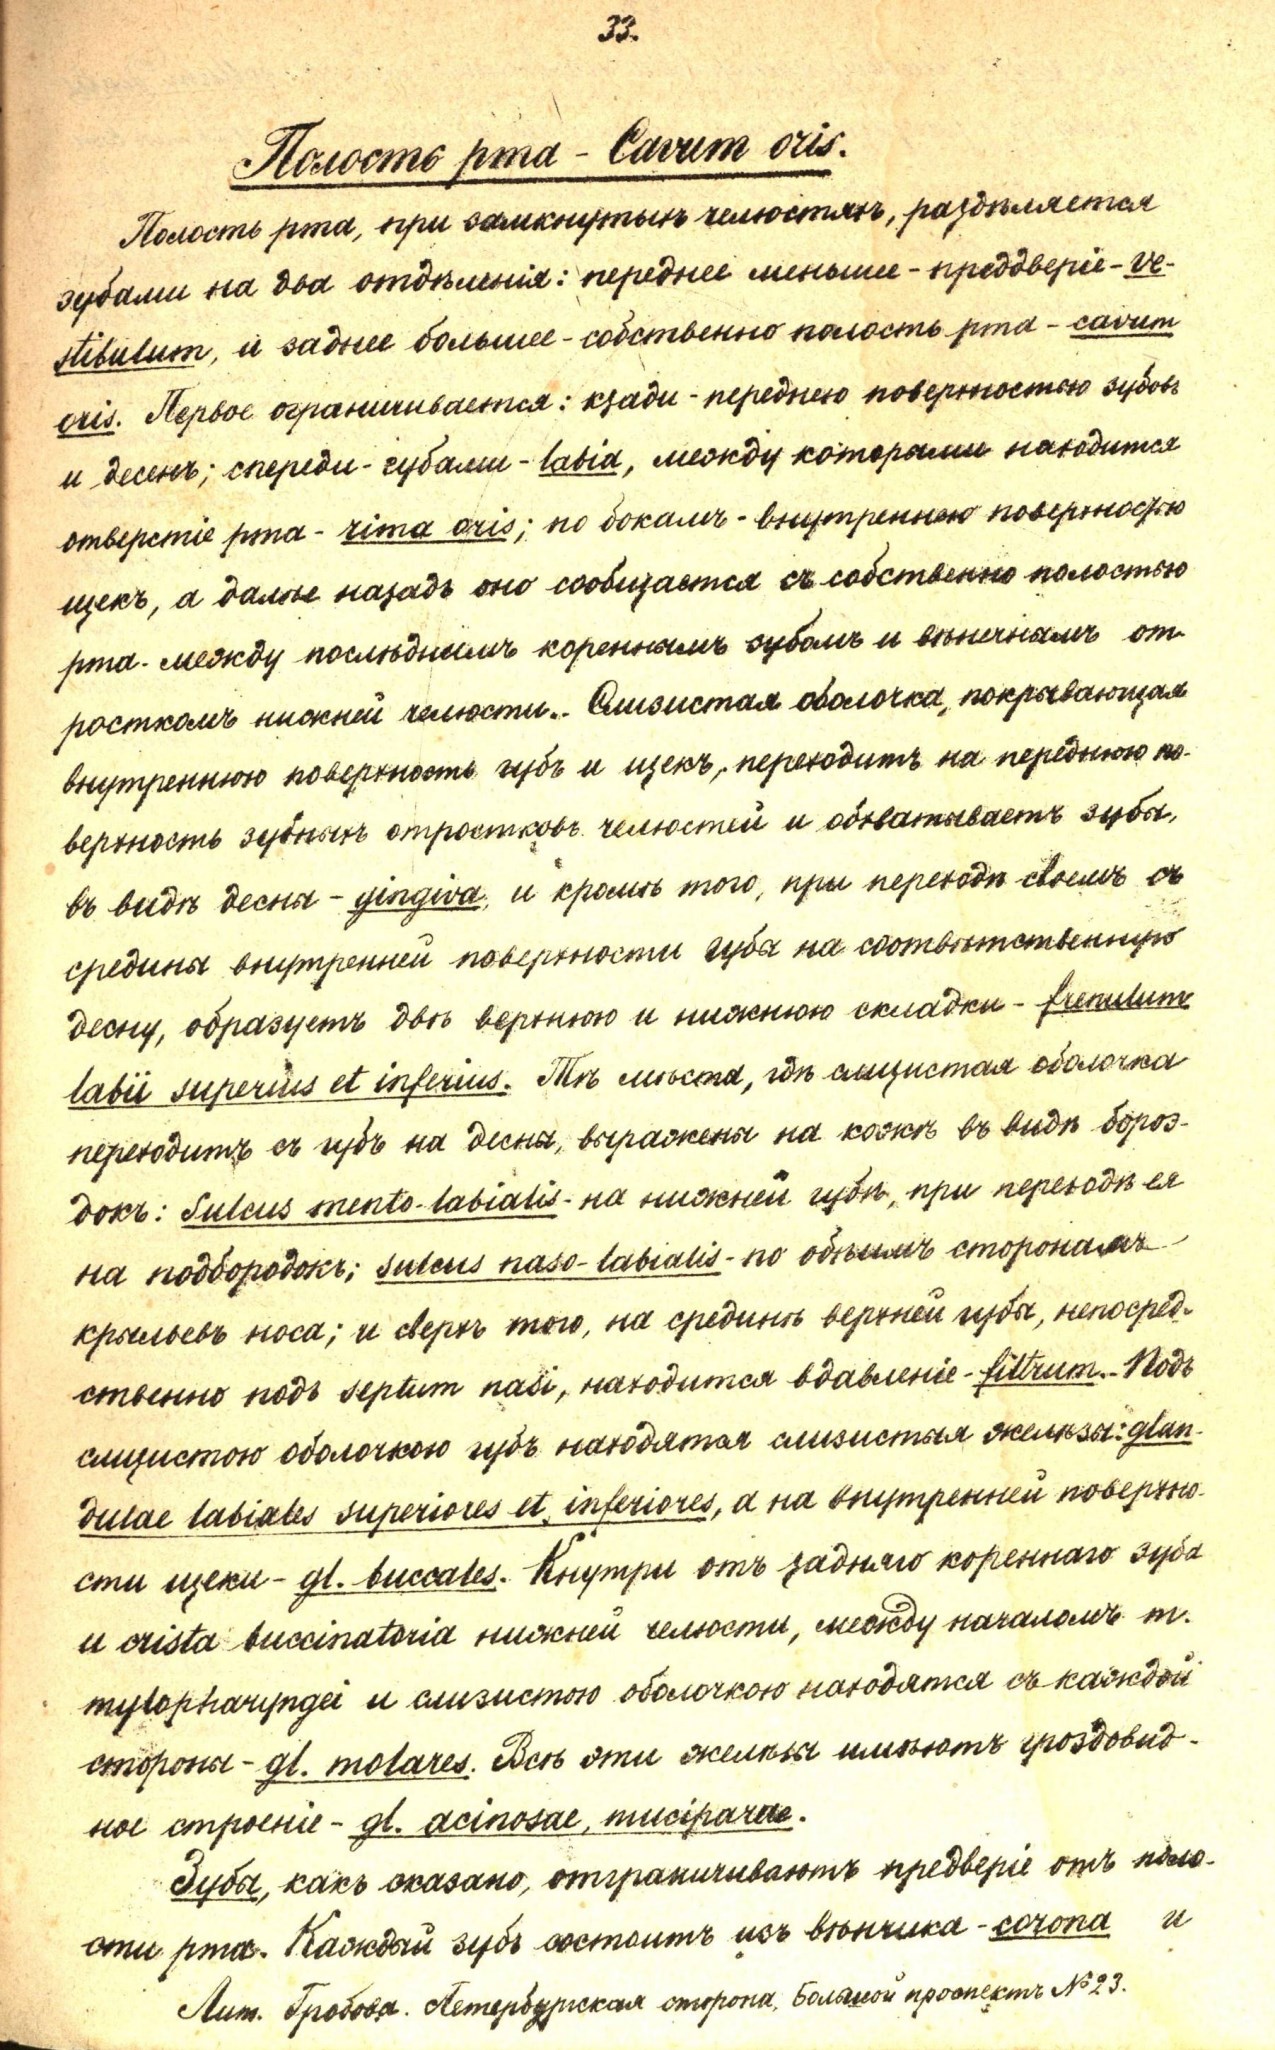 33.
Полость рта - Cavum oris.
Полость рта, при замкнутыхъ челюстяхъ, раздѣляется
зубами на два отдѣленія: переднее меньшее - преддверіе - ve-
stibulum, и заднее большее - собственно полость рта - cavum
oris. Первое ограничивается: кзади - переднею поверхностью зубовъ
и десенъ; спереди - губами - labia, между которыми находится
отверстіе рта - rima oris; по бокамъ - внутреннею поверхностью
щекъ, а далѣе назадъ оно сообщается съ собственно полостью
рта - между послѣднимъ кореннымъ зубомъ и вѣнечнымъ от-
росткомъ нижней челюсти. - Слизистая оболочка, покрывающая
внутреннюю поверхность губъ и щекъ, переходитъ на переднюю по-
верхность зубныхъ отростковъ челюстей и обхватываетъ зубы,
въ видѣ десны - gingiva, и кромѣ того, при переходѣ своемъ съ
средины внутренней поверхности губы на соотвѣтственную
десну, образуетъ двѣ верхнюю и нижнюю складки - frenulum
labii superius et inferius. Тѣ мѣста, гдѣ слизистая оболочка
переходитъ съ губъ на десны, выражены на кожѣ въ видѣ бороз-
докъ: Sulcus mento-labialis - на нижней губѣ, при переходѣ ея
на подбородокъ; sulcus naso-labialis - по обѣимъ сторонамъ
крыльевъ носа; и сверхъ того, на срединѣ верхней губы, непосред-
ственно подъ septum nasi, находится вдавленіе - filtrum. - Подъ
слизистою оболочкою губъ находятся слизистыя железы: glan-
dulae labiales superiores et inferiores, а на внутренней поверхно-
сти щеки - gl. buccales. Кнутри отъ задняго кореннаго зуба
и crista buccinatoria нижней челюсти, между началомъ m.
mylopharyngei и слизистою оболочкою находятся съ каждой
стороны - gl. molares. Всѣ эти железы имѣютъ гроздовид-
ное строеніе - gl. acinosae, muciparae.
Зубы, какъ сказано, отграничиваютъ предверіе отъ поло-
сти рта. Каждый зубъ состоитъ изъ вѣнчика - corona и
Лит. Гробова. Петербургская сторона, Большой проспектъ № 23.